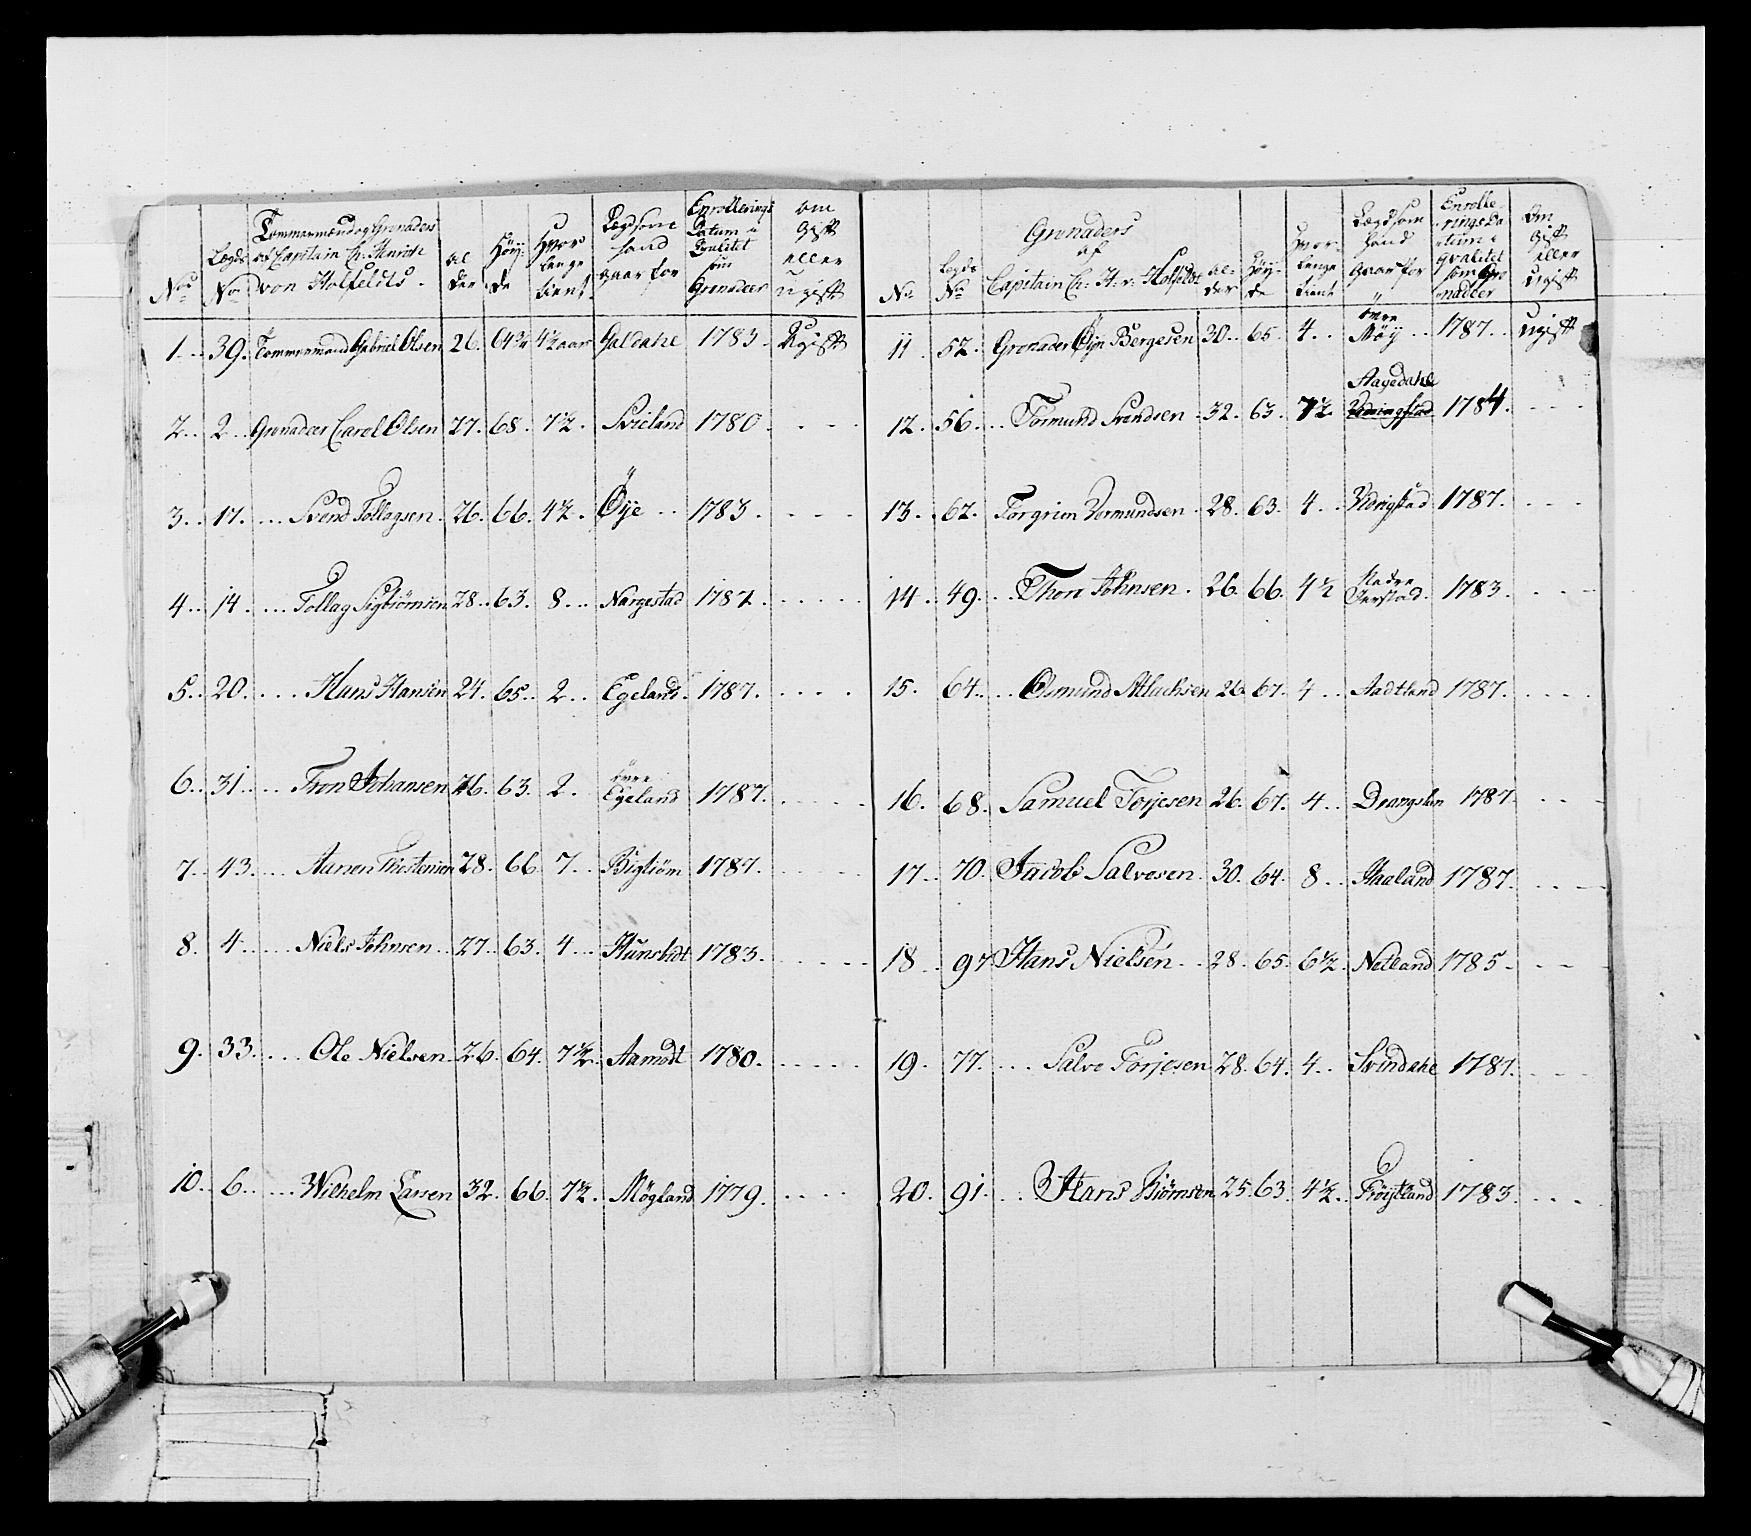 Tømmermænd og Grenaders
af Capitain Ch: Henrich
von Holfeldts.
No
Lægds No
Al der
Høy: de
Hvor lenge tient
Lægd som hand gaar for
Enrollerings Datum i Qvalitet som Grenadeer
om Gift eller ugift
1. 39. Tømmermand Gabriel Olsen 26. 64 3/4 4 1/2 aar Galdahl 1783. Ugift
2. 2. Grenadeer Carel Olsen 27. 68. 7 1/2. Svieland 1780. - - -
3. 17. Svend Tollagsen. 26. 66. 4 1/2. Øÿe 1783. - - -
4. 14. Tollag Sigbiørnsen 28. 63. 8. Nargestad 1787. - - -
5. 20. Hans Hansen 24. 65. 2. Egeland. 1787. - - -
6. 31. Tron Johansen 26. 63. 2. øvre Egeland 1787. - - -
7. 43. Aanen Thostensen 28. 66. 7. Bigtiøm 1787. - - -
8. 4. Niels Johnsen 27. 63. 4. Hunsbdt 1783. - - -
9. 33. Ole Nielsen. 26. 64. 7 1/2. Aamodt 1780. - - -
10. 6. Wilhelm Larsen 32. 66. 7 1/2. Møgland 1779. - - -
Grenaders
af
Capitain Ch: H: v: Holfeldt
No
Lægds No
Al- der
Høy- de
Hvor lenge tient
Lægd som hand gaar for
Enrolle- rings Da- tum i qvalitet som Gre nadeer
Om Gift eller ugift
11. 52. Grenadeer Øÿn Bergesen 30. 65. 4. øvre Møÿ 1787. Ugift
12. 56. Tormund Svendsen. 32. 63. 7 1/2. Aagedahl Vidringstad 1784. - - -
13. 62. Torgrim Vormundsen. 28. 63. 4. Vidrigstad 1787. - - -
14. 49. Thore Johnsen. 26. 66. 4 1/2 Nedre Ierstad. 1783. - - -
15. 64. Osmund Atlachsen 26. 67. 4 Aadtland 1787. - - -
16. 68. Samuel Torjesen 26. 67. 4. Drangsten 1787. - - -
17. 70. Jacob Salvesen. 30. 64. 8. Haaland 1787. - - -
18. 97 Hans Nielsen 28. 65. 6 1/2. Netland 1785. - - -
19. 77. Salve Torjesen 28. 64. 4. Svindahl 1787. - - -
20. 91. Hans Biørnsen 25. 63. 4 1/2. Frøÿtland 1783. - - -